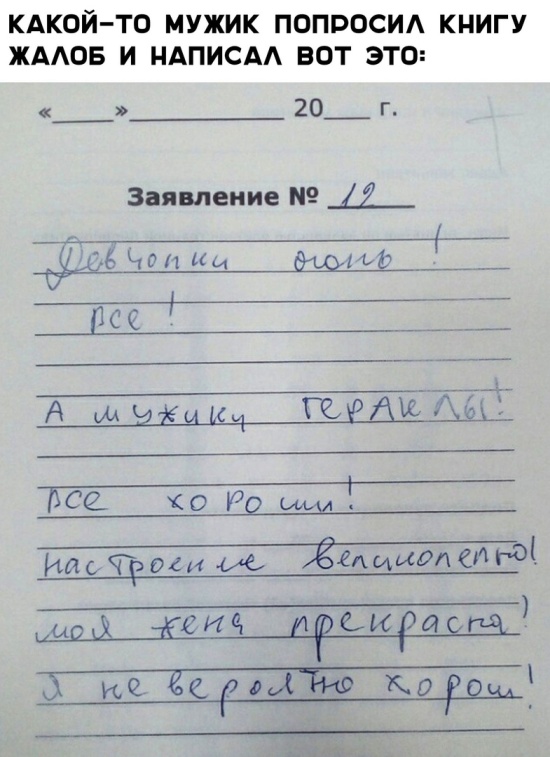 КАКОЙ-ТО МУЖИК ПОПРОСИЛ КНИГУ
ЖАЛОБ И НАПИСАЛ ВОТ ЭТО:
«____»____________ 20____ г.
Заявление № 12
Девчонки огонь!
все!
А мужики ГЕРАКЛЫ!
все хороши!
настроение великолепно!
моя жена прекрасна!
Я невероятно хорош!